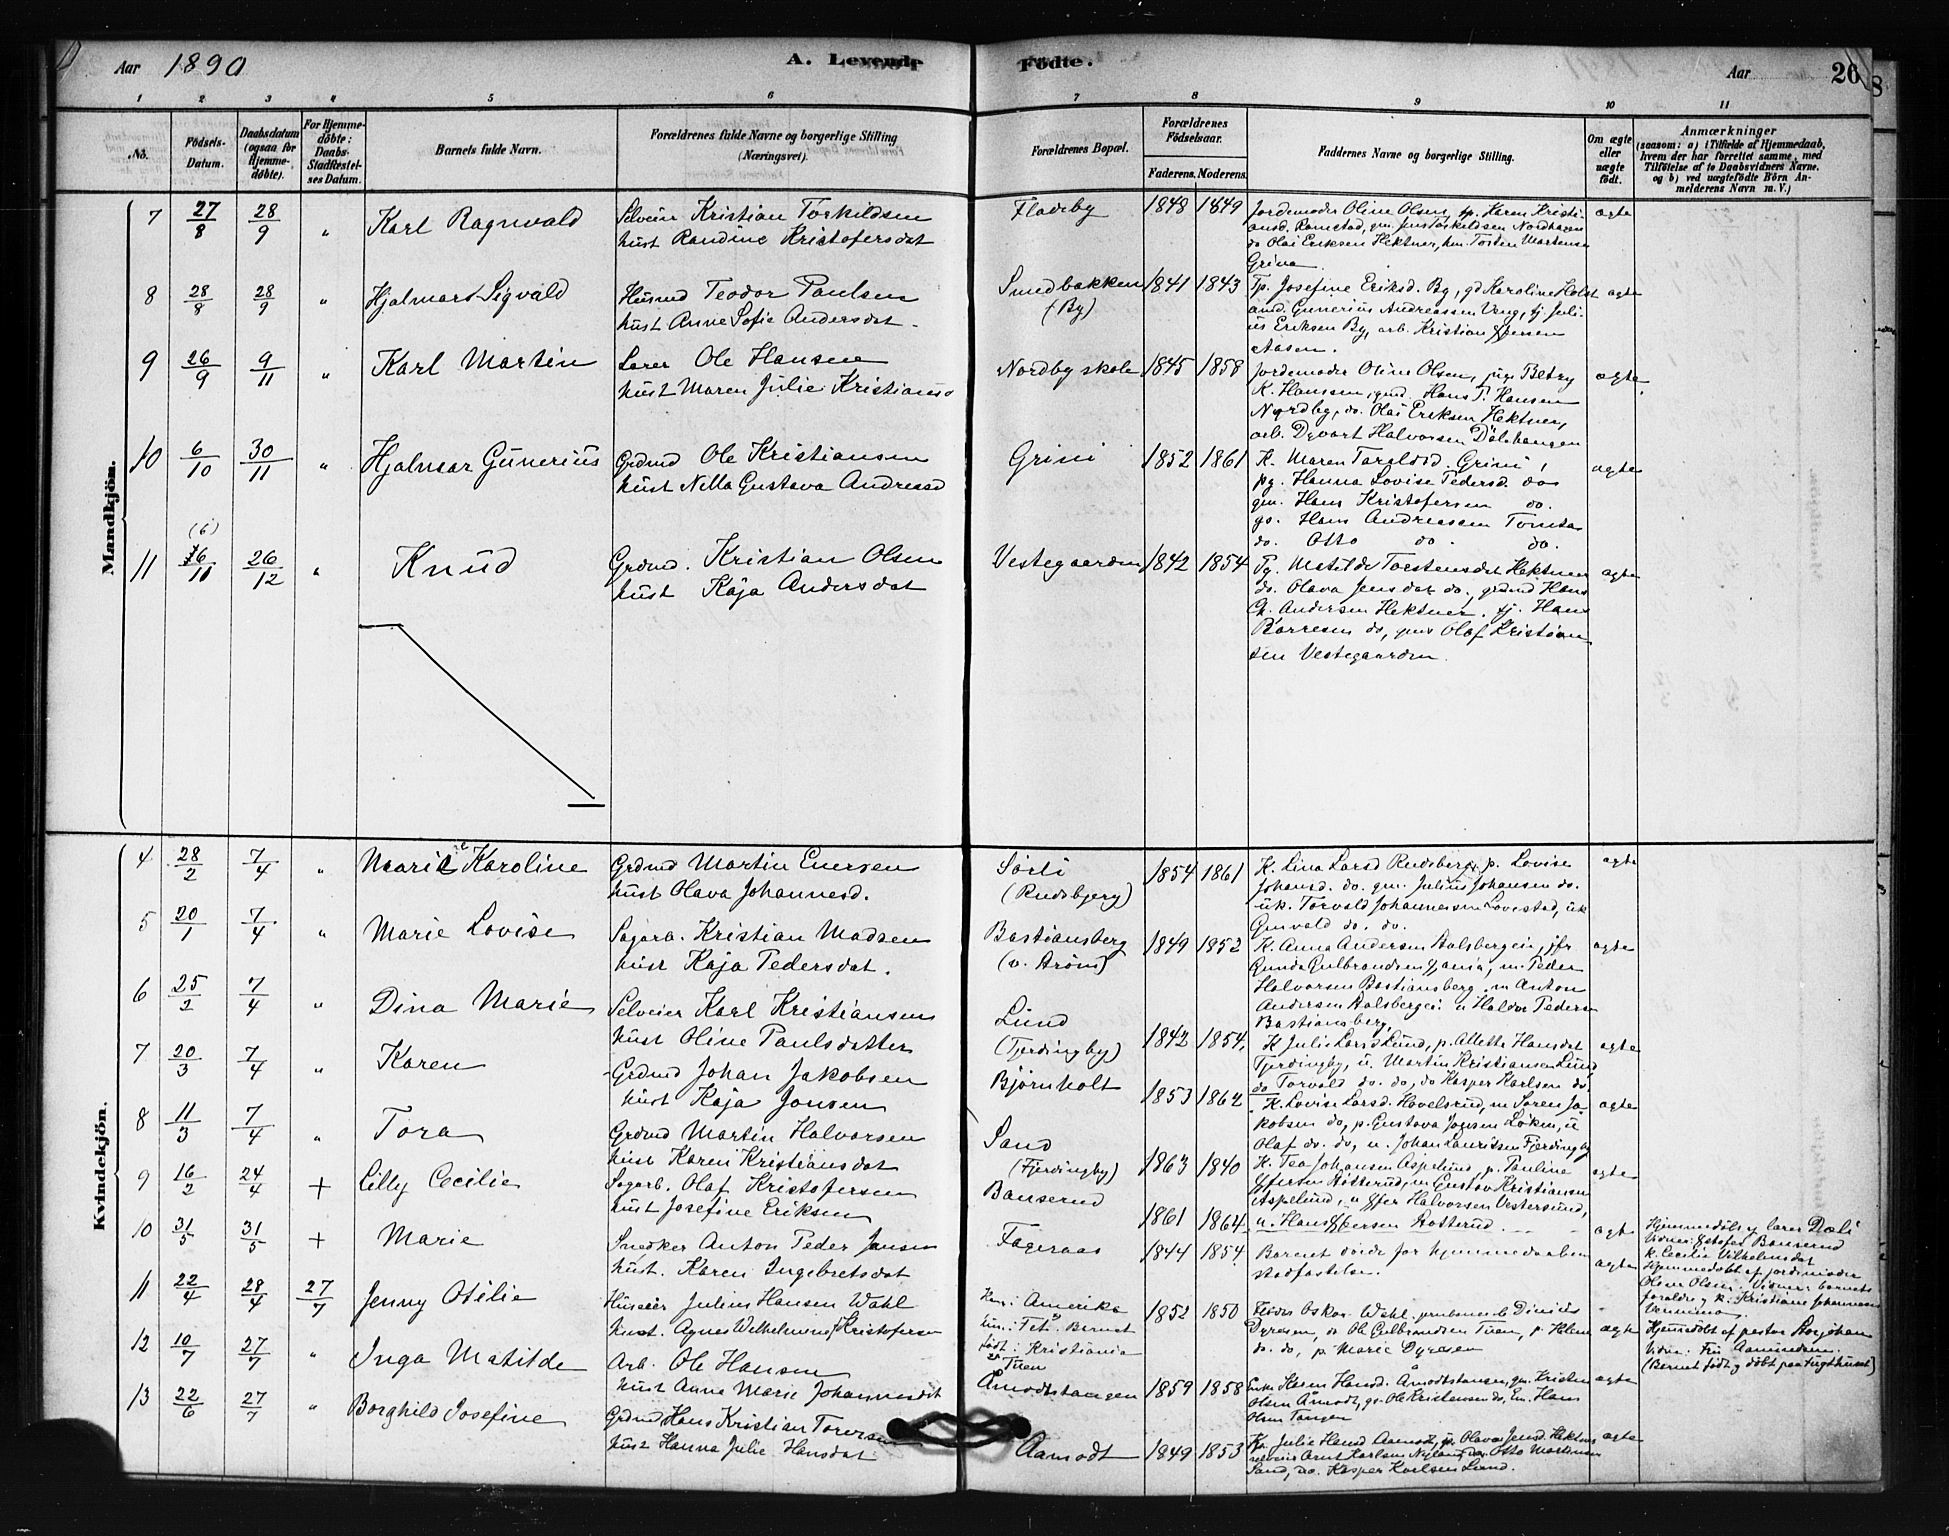 Aar 1890
A. Levende Fødte.
Aar
26
8
1 2 3 4 5 6 7 8 9 10 11
No.
Fødsels-
Datum.
Daabsdatum
(ogsaa for
Hjemme-
døbte).
For Hjemme-
døbte:
Daabs-
Stadfæstel-
ses Datum.
Barnets fulde Navn.
Forældrenes fulde Navne og borgerlige Stilling
(Næringsvei).
Forældrenes Bopæl.
Forældrenes
Fødselsaar.
Faderens. Moderens.
Faddernes Navne og borgerlige Stilling.
Om ægte
eller
uægte
født.
Anmærkninger
(saasom: a) i Tilfælde af Hjemmedaab,
hvem der har forrettet samme, med
Tilføielse af to Daabsvidners Navne,
og b) ved uægtefødte Børn An-
melderens Navn m. V.)
Mandkjøn.
7 27/8 28/9 " Karl Ragnvald
Selveier Kristian Torkildsen
hust Randine Kristofersdat
Fladeby 1848 1849
Jordemoder Oline Olsen, p. Karen Kristi-
ansd. Ramstad, gm. Jens Toskildsen Nordhagen
do Olai Eriksen Hektner, hm. Torsten Martensen
Grina
ægte
8 28/8 28/9 " Hjalmar Sigvald
Husmd Teodor Paulsen
hust Anne Sofie Andersdat.
Sundbakken
(By)
1841 1843
Tp. Josefine Eriksd. By, gd Karoline Holst
Gunerius Andreassen Veng, tj. Juli-
us Eriksen By, arb. Kristian
Aasen.
ægte
9 26/9 9/11 " Karl Martin
Lærer Ole Hansen
hust Maren Julie Kristiansd
Nordby skole 1845 1858
Jordemoder Oline Olsen, pige Betzy
K. Hansen, gmd. Hans T. Hansen
Nordby, do. Olai Eriksen Hektner,
arb. Halvorsen Dölehaugen
ægte
10 6/10 30/11 " Hjalmar Gunerius
Grdmd Ole Kristiansen
hust Nella Gustava Andreasd
Grini 1852 1861
K. Maren Taraldsd. Grini,
pg. Hanna Lovise Pedersd. do
gm. Hans Kristofersen do.
gs. Hans Andreassen Tomta
do. Otto do. do.
ægte
(6)
11 16/11 26/12 " Knud
Grdmd. Kristian Olsen
hust Kaja Andersdat
Vestegaarden 1842 1854
Pg. Matilde Torstensdat Hektner
do. Olava Jensdat do., grdmd Hans
Ch. Andersen Hektner. tj. Hans
Borresen do, Olaf Kristian
sen Vestegaarden.
ægte
Kvindekjøn.
4 28/2 7/4 " Marie Karoline
Grdmd Martin Enersen
hust Olava Johannesd.
Sörli
(Rudsbjerg)
1854 1861
K. Lina Larsd Rudsberg, p. Lovise
Johansd. do. gm. Julius Johansen do.
uk. Torvald Johannessen Lovestad, uk
Gunvald do. do.
ægte
5 20/1 7/4 " Marie Lovise
Sagarb. Kristian Madsen
hust Kaja Pedersdat.
Bastiansberg
1849 1852
K. Anna Andersen Aalsbergeie, jfr
Gunda Gulbrandsen Xania, m. Peder
Halvorsen Bastiansberg. m Anton
Andersen Aalsbergeie u Haldor Pedersen
Bastiansberg.
ægte
6 25/2 7/4 " Dina Marie
Selveier Karl Kristiansen
hust Oline Paulsdatter
Lund
(Fjerdingby)
1842 1854
K Julie Larsd Lund, p. Alette Hansdat
Fjerdingby, u. Martin Kristiansen Lund
do Torvald do. do, do Kasper Karlsen do.
ægte
7 20/3 7/4 " Karen
Grdmd Johan Jakobsen
hust Kaja Jonsen
Björnholt
1853 1862
K. Lovise Larsd. Hovelsrud, m Sören Ja-
kobsen do, p. Gustava Jörgensen Löken, u
Olaf do. do, u. Johan Lauritsen Fjerdingby
ægte
8 11/3 7/4 " Tora
Grdmd Martin Halvorsen
hust Karen Kristiansdat
Sand
(Fjerdingby)
1863 1840
K. Tea Johansen Aspelund, p. Pauline
Stotterud, m Gustav Kristiansen
Aspelund, u Halvorsen Vestersund,
u. Hans Stotterud.
ægte
9 16/2 24/4 + Cilly Cecilie
Sagarb. Olaf Kristofersen
hust Josefine Eriksen
Banserud
1861 1864
ægte
Hjemmedöbt af lærer Dæli
Vidner: Kristofer Banserud
k. Cecilie Vilhelmsdat
10 31/5 31/5 + Marie
Snedker Anton Peder Jansen
hust. Karen Ingebretsdat
Fageraas
1844 1854
Barnet döde för hjemmedaabens
stadfæstelse.
ægte
Hjemmedöbt af jordemoder
Olsen. Vidner: barnets
forældre og k. Kristiane Johannesen
11 22/4 28/4 27/7 Jenny Otilie
Huseier Julius Hansen Wahl
hust. Agnes Wilhelmine Kristofersen
Han: Amerika
Hun: Barnet
født: Kristiania
1852 1850
Oskar Wahl,
Dyresen, do Ole Gulbrandsen Tuen, p. Helene
do. do, p. Marie Dyresen
ægte
Hjemmedöbt af pastor
Vidne: Fru Aamundsen.
(Barnet födt og döbt paa Tugthuset)
12 10/7 27/7 " Inga Matilde
Arb. Ole Hansen
hust Anne Marie Johannesdat
Tuen
Åmodtstangen
1859 1858
Enke Karen Hansd. Åmodtstangen, gm. Kristen
Olsen Åmodt, gs. Ole Kristensen do, Em. Hans
Olsen Tangen
ægte
13 22/6 27/7 " Borghild Josefine
Grdmd Hans Kristian Torersen
hust Hanna Julie Hansdat
Aamodt 1849 1853
Kp. Julie Hansd Aamodt, p. Olava Jensd Hektner
selveier Arnt Karlsen Nyland, do Otto Martinsen
Sand, do. Kasper Karlsen Lund.
ægte